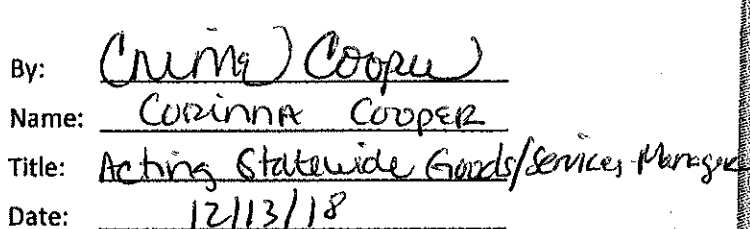 By: Corinna Cooper
Name: Corinna Cooper
Title: Acting Statewide Goods/Services Manager
Date: 12/13/18